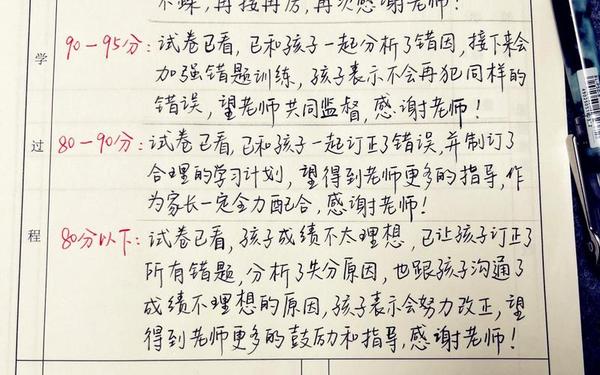 不躁，再接再厉，再次感谢老师！
学
90-95分：试卷已看，已和孩子一起分析了错因，接下来会
加强错题训练，孩子表示不会再犯同样的
错误，望老师共同监督，感谢老师！
过
80-90分：试卷已看，已和孩子一起订正了错误，并制订了
合理的学习计划，望得到老师更多的指导，作
为家长一定全力配合，感谢老师！
程
80分以下：试卷已看，孩子成绩不太理想，已让孩子订正了
所有错题，分析了失分原因，也跟孩子沟通了
成绩不理想的原因，孩子表示会努力改正，望
得到老师更多的鼓励和指导，感谢老师！